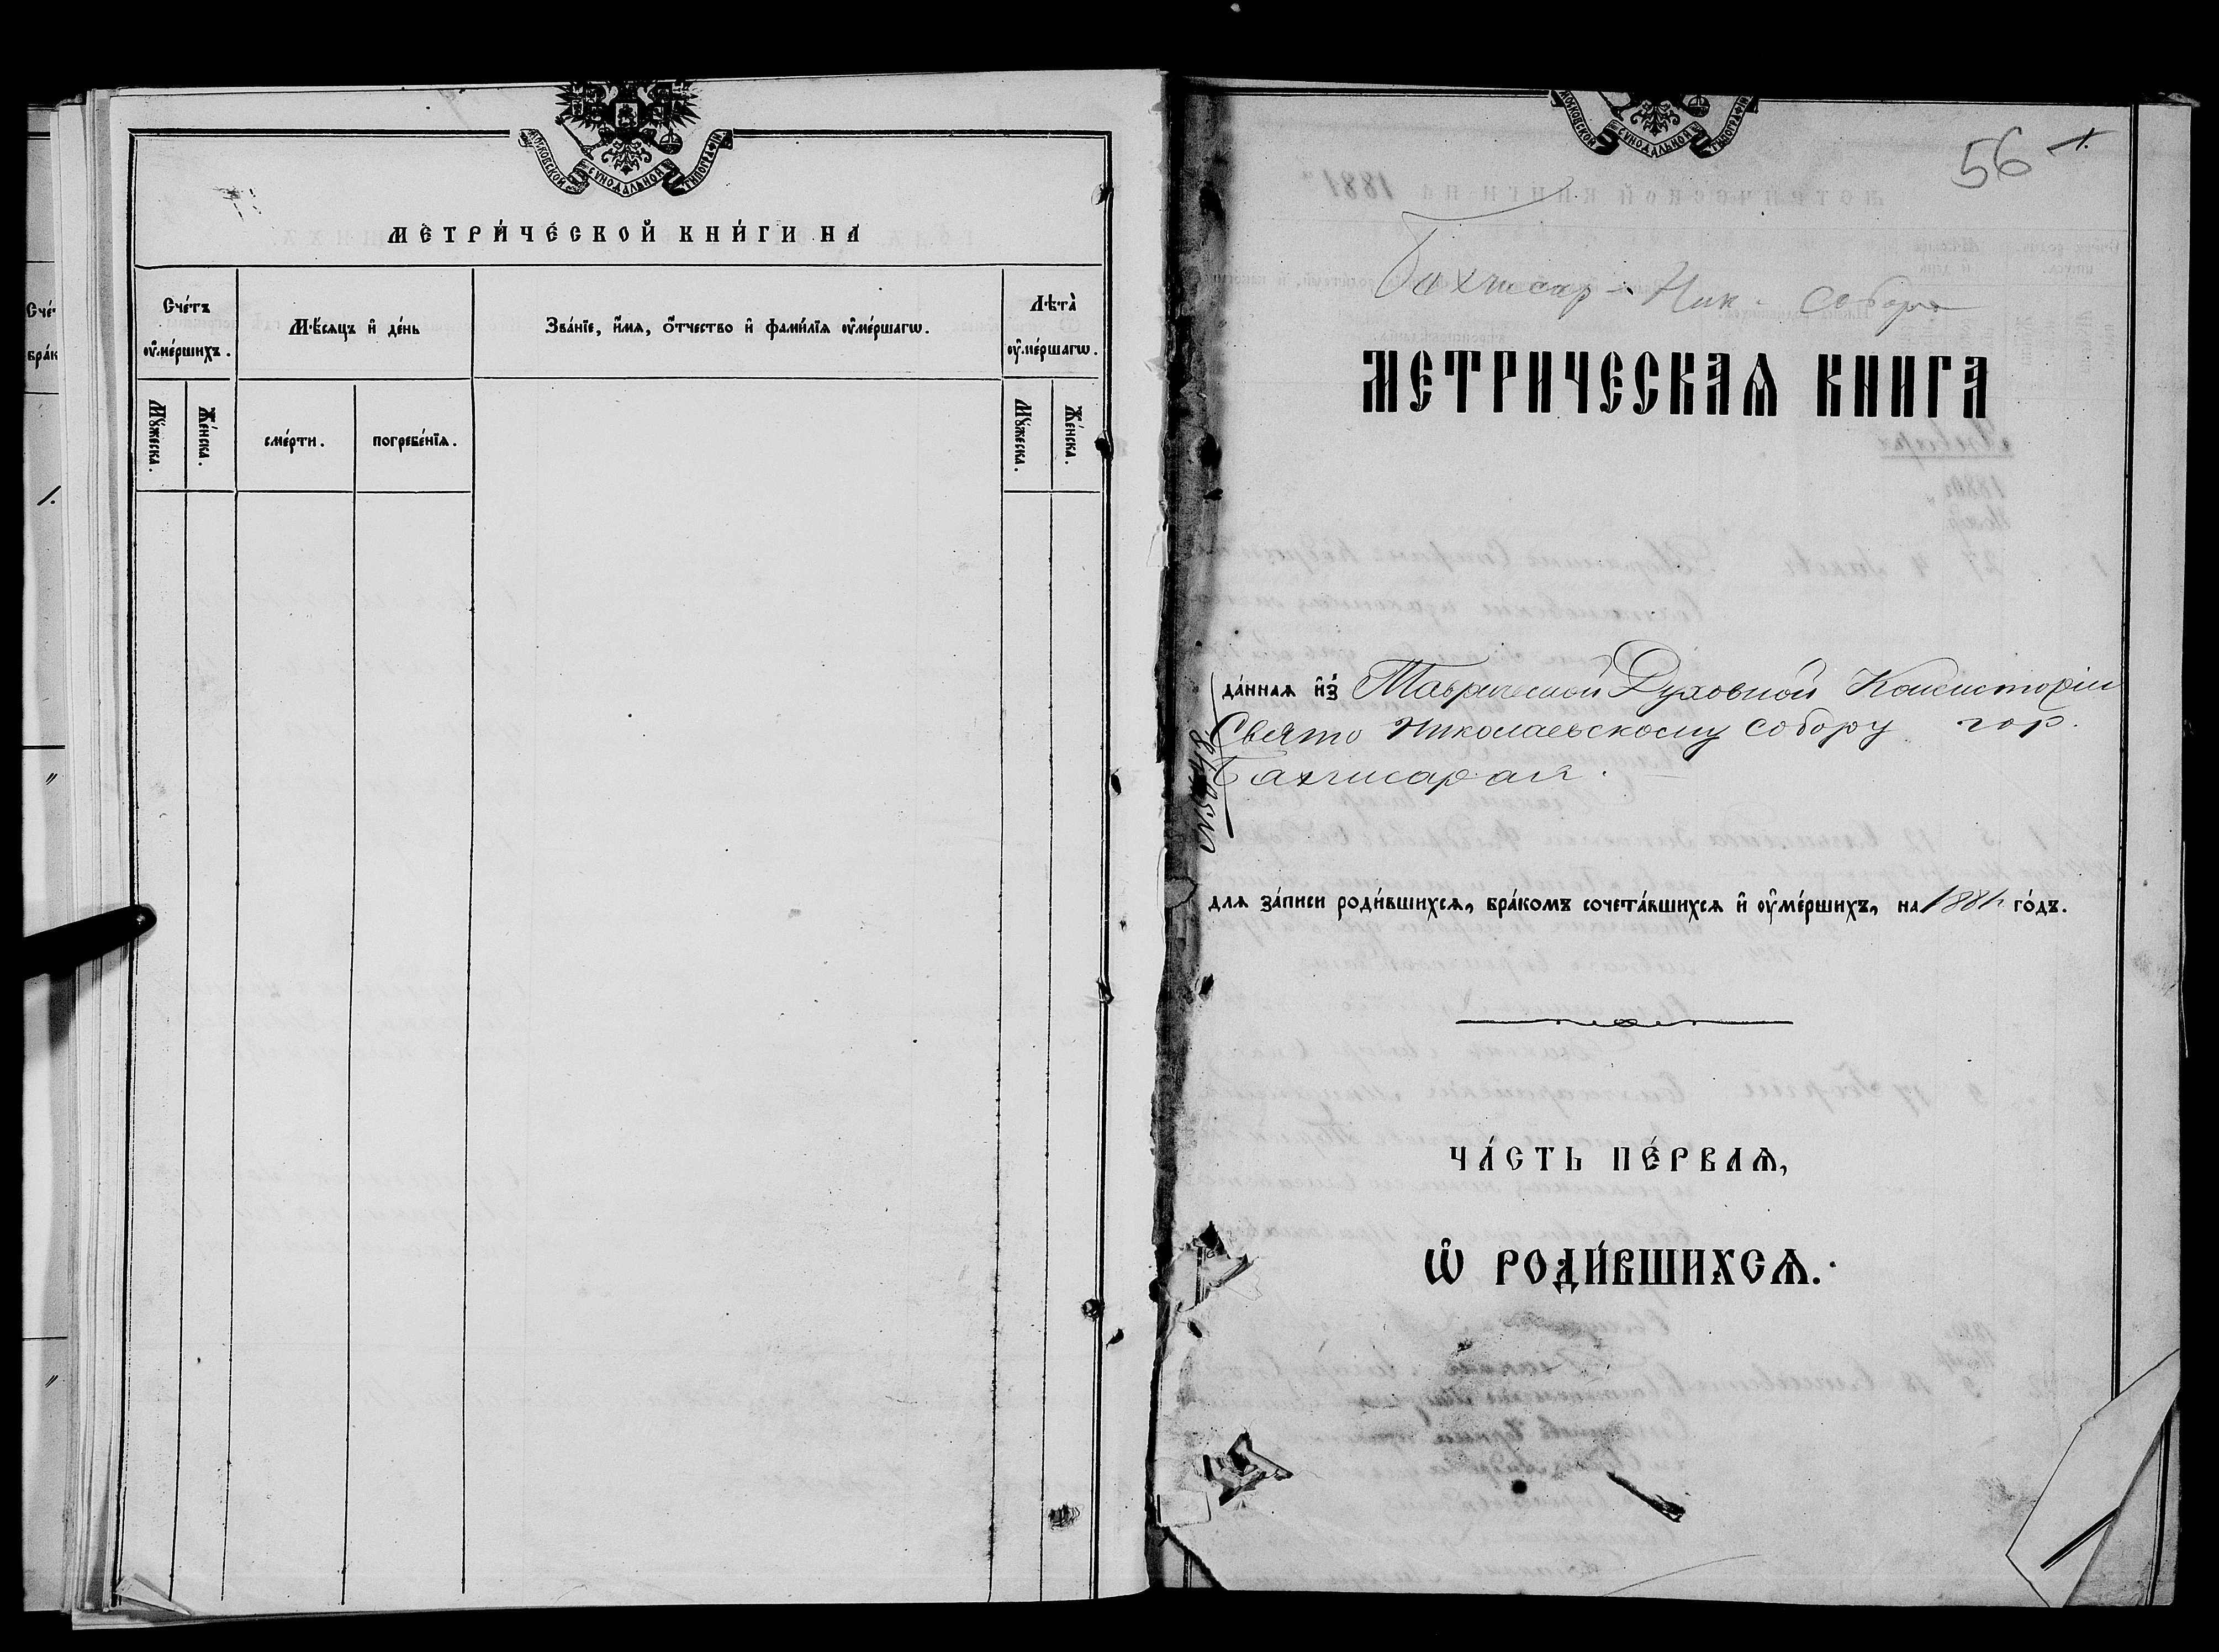 МОСКОВСКОЙ СѴНОДАЛЬНОЙ ТИПОГРАФІИ
МЕТРИ́ЧЕСКОЙ КНИ́ГИ НА
Сче́тъ ᲂу҆ме́ршихъ.
Мѣ́сяцъ и҆ де́нь
Зва́нїе, и҆́мя, ѻ҆́тчество и҆ фами́лїя ᲂу҆ме́ршагѡ.
Лѣта̀ ᲂу҆ме́ршагѡ.
Мꙋ́жеска.
Же́нска.
сме́рти.
погребе́нїя.
Мꙋ́жеска.
Же́нска.
Сче́
бра́к
1.
"
"
МОСКОВСКОЙ СѴНОДАЛЬНОЙ ТИПОГРАФІИ
56
1.
Бахчисар - Ник. собора
МЕТРИЧЕСКАѦ КНИГА
да́нная и҆з̾ Таврической Духовной Консисторіи
Свято Николаевскому собору гор.
Бахчисарая.
для за́писи роди́вшихся, бра́комъ сочета́вшихся и҆ ᲂу҆ме́ршихъ, на 1881 го́дъ.
ЧА́СТЬ ПЕ́РВАѦ,
Ѡ҆ РОДИ́ВШИХСѦ.